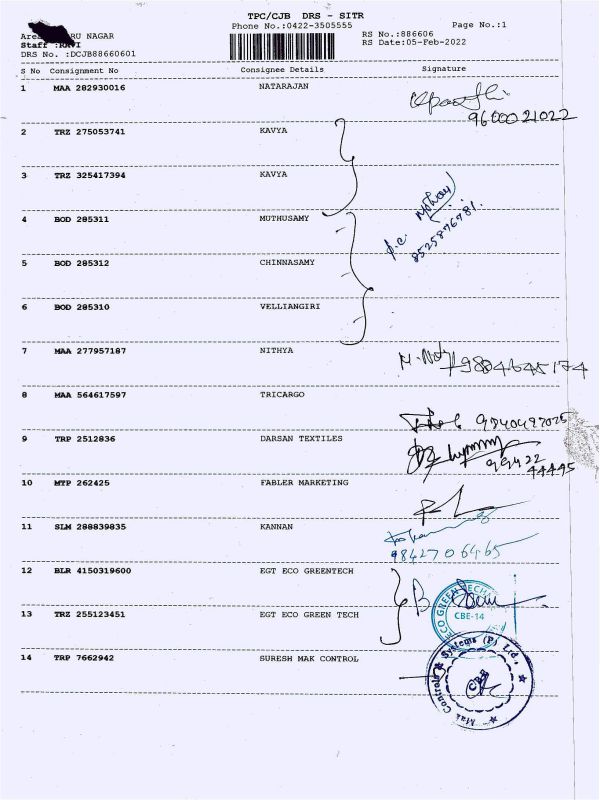 TPC/CJB DRS - SITR
Phone No.:0422-3505555
Page No.:1
RU NAGAR
RS No.:886606
Staff :RAVI
RS Date:05-Feb-2022
DRS No. :DCJB88660601
S No Consignment No Consignee Details Signature
1 MAA 282930016 NATARAJAN
9600021022
2 TRZ 275053741 KAVYA
3 TRZ 325417394 KAVYA
4 BOD 285311 MUTHUSAMY
5 BOD 285312 CHINNASAMY
6 BOD 285310 VELLIANGIRI
7 MAA 277957187 NITHYA
8 MAA 564617597 TRICARGO
9 TRP 2512836 DARSAN TEXTILES
99422
44445
10 MTP 262425 FABLER MARKETING
11 SLM 288839835 KANNAN
9842706465
12 BLR 4150319600 EGT ECO GREENTECH
13 TRZ 255123451 EGT ECO GREEN TECH
ECO GREEN TECH
CBE-14
14 TRP 7662942 SURESH MAK CONTROL
Mak Controls & Systems (P) Ltd.,